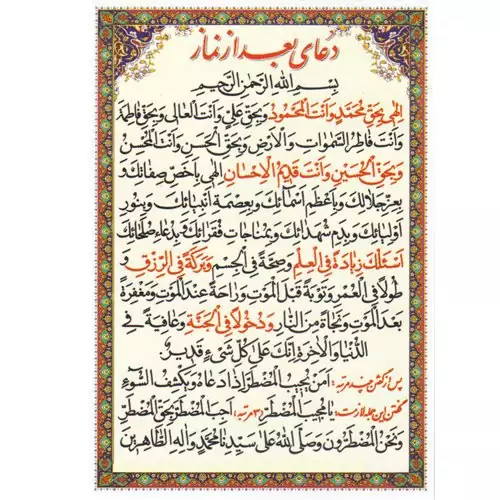 دعای بعد از نماز
بِسْمِ اللهِ الرَّحْمٰنِ الرَّحیمِ
اِلٰهی بِحَقِّ مُحَمَّدٍ وَاَنْتَ الْمَحْمُودُ وَبِحَقِّ عَلِیٍّ وَاَنْتَ الْعَالی وَبِحَقِّ فاطِمَةَ
وَاَنْتَ فَاطِرُ السَّمٰوَاتِ وَالْاَرْضِ وَبِحَقِّ الْحَسَنِ وَاَنْتَ الْمُحْسِنُ
وَبِحَقِّ الْحُسَیْنِ وَاَنْتَ قَدیمُ الْاِحْسَانِ اِلٰهی بِاَخَصِّ صِفَاتِكَ وَ
بِعِزِّ جَلَالِكَ وَبِاَعْظَمِ اَسْمَائِكَ وَبِعِصْمَةِ اَنْبِیَائِكَ وَبِنُورِ
اَوْلِیَائِكَ وَبِدَمِ شُهَدَائِكَ وَبِمُنَاجَاتِ فُقَرَائِكَ بِدُعَاءِ صُلَحَائِكَ
اَسْئَلُكَ زِیَادَةً فِی الْعِلْمِ وَصِحَّةً فِی الْجِسْمِ وَبَرَكَةً فِی الرِّزْقِ وَ
طُولًا فِی الْعُمْرِ وَتَوْبَةً قَبْلَ الْمَوْتِ وَرَاحَةً عِنْدَ الْمَوْتِ وَمَغْفِرَةً
بَعْدَ الْمَوْتِ وَنَجَاةً مِنَ النَّارِ وَدُخُولًا فِی الْجَنَّةِ وَعَافِیَةً فِی
الدُّنْیَا وَالْاٰخِرَةِ اِنَّكَ عَلٰی كُلِّ شَیْءٍ قَدیرٌ
پس از گفتن چند مرتبه: اَمَّنْ یُجیبُ الْمُضْطَرَّ اِذَا دَعَاهُ وَیَكْشِفُ السُّوءَ
گفتن این جمله لازمست: یَا مُجیبَ الْمُضْطَرِّ (۳ مرتبه) اَجِبِ الْمُضْطَرَّ بِحَقِّ الْمُضْطَرِّ
وَنَحْنُ الْمُضْطَرُّونَ وَصَلَّی اللهُ عَلٰی سَیِّدِنَا مُحَمَّدٍ وَاٰلِهِ الطَّاهِرینَ